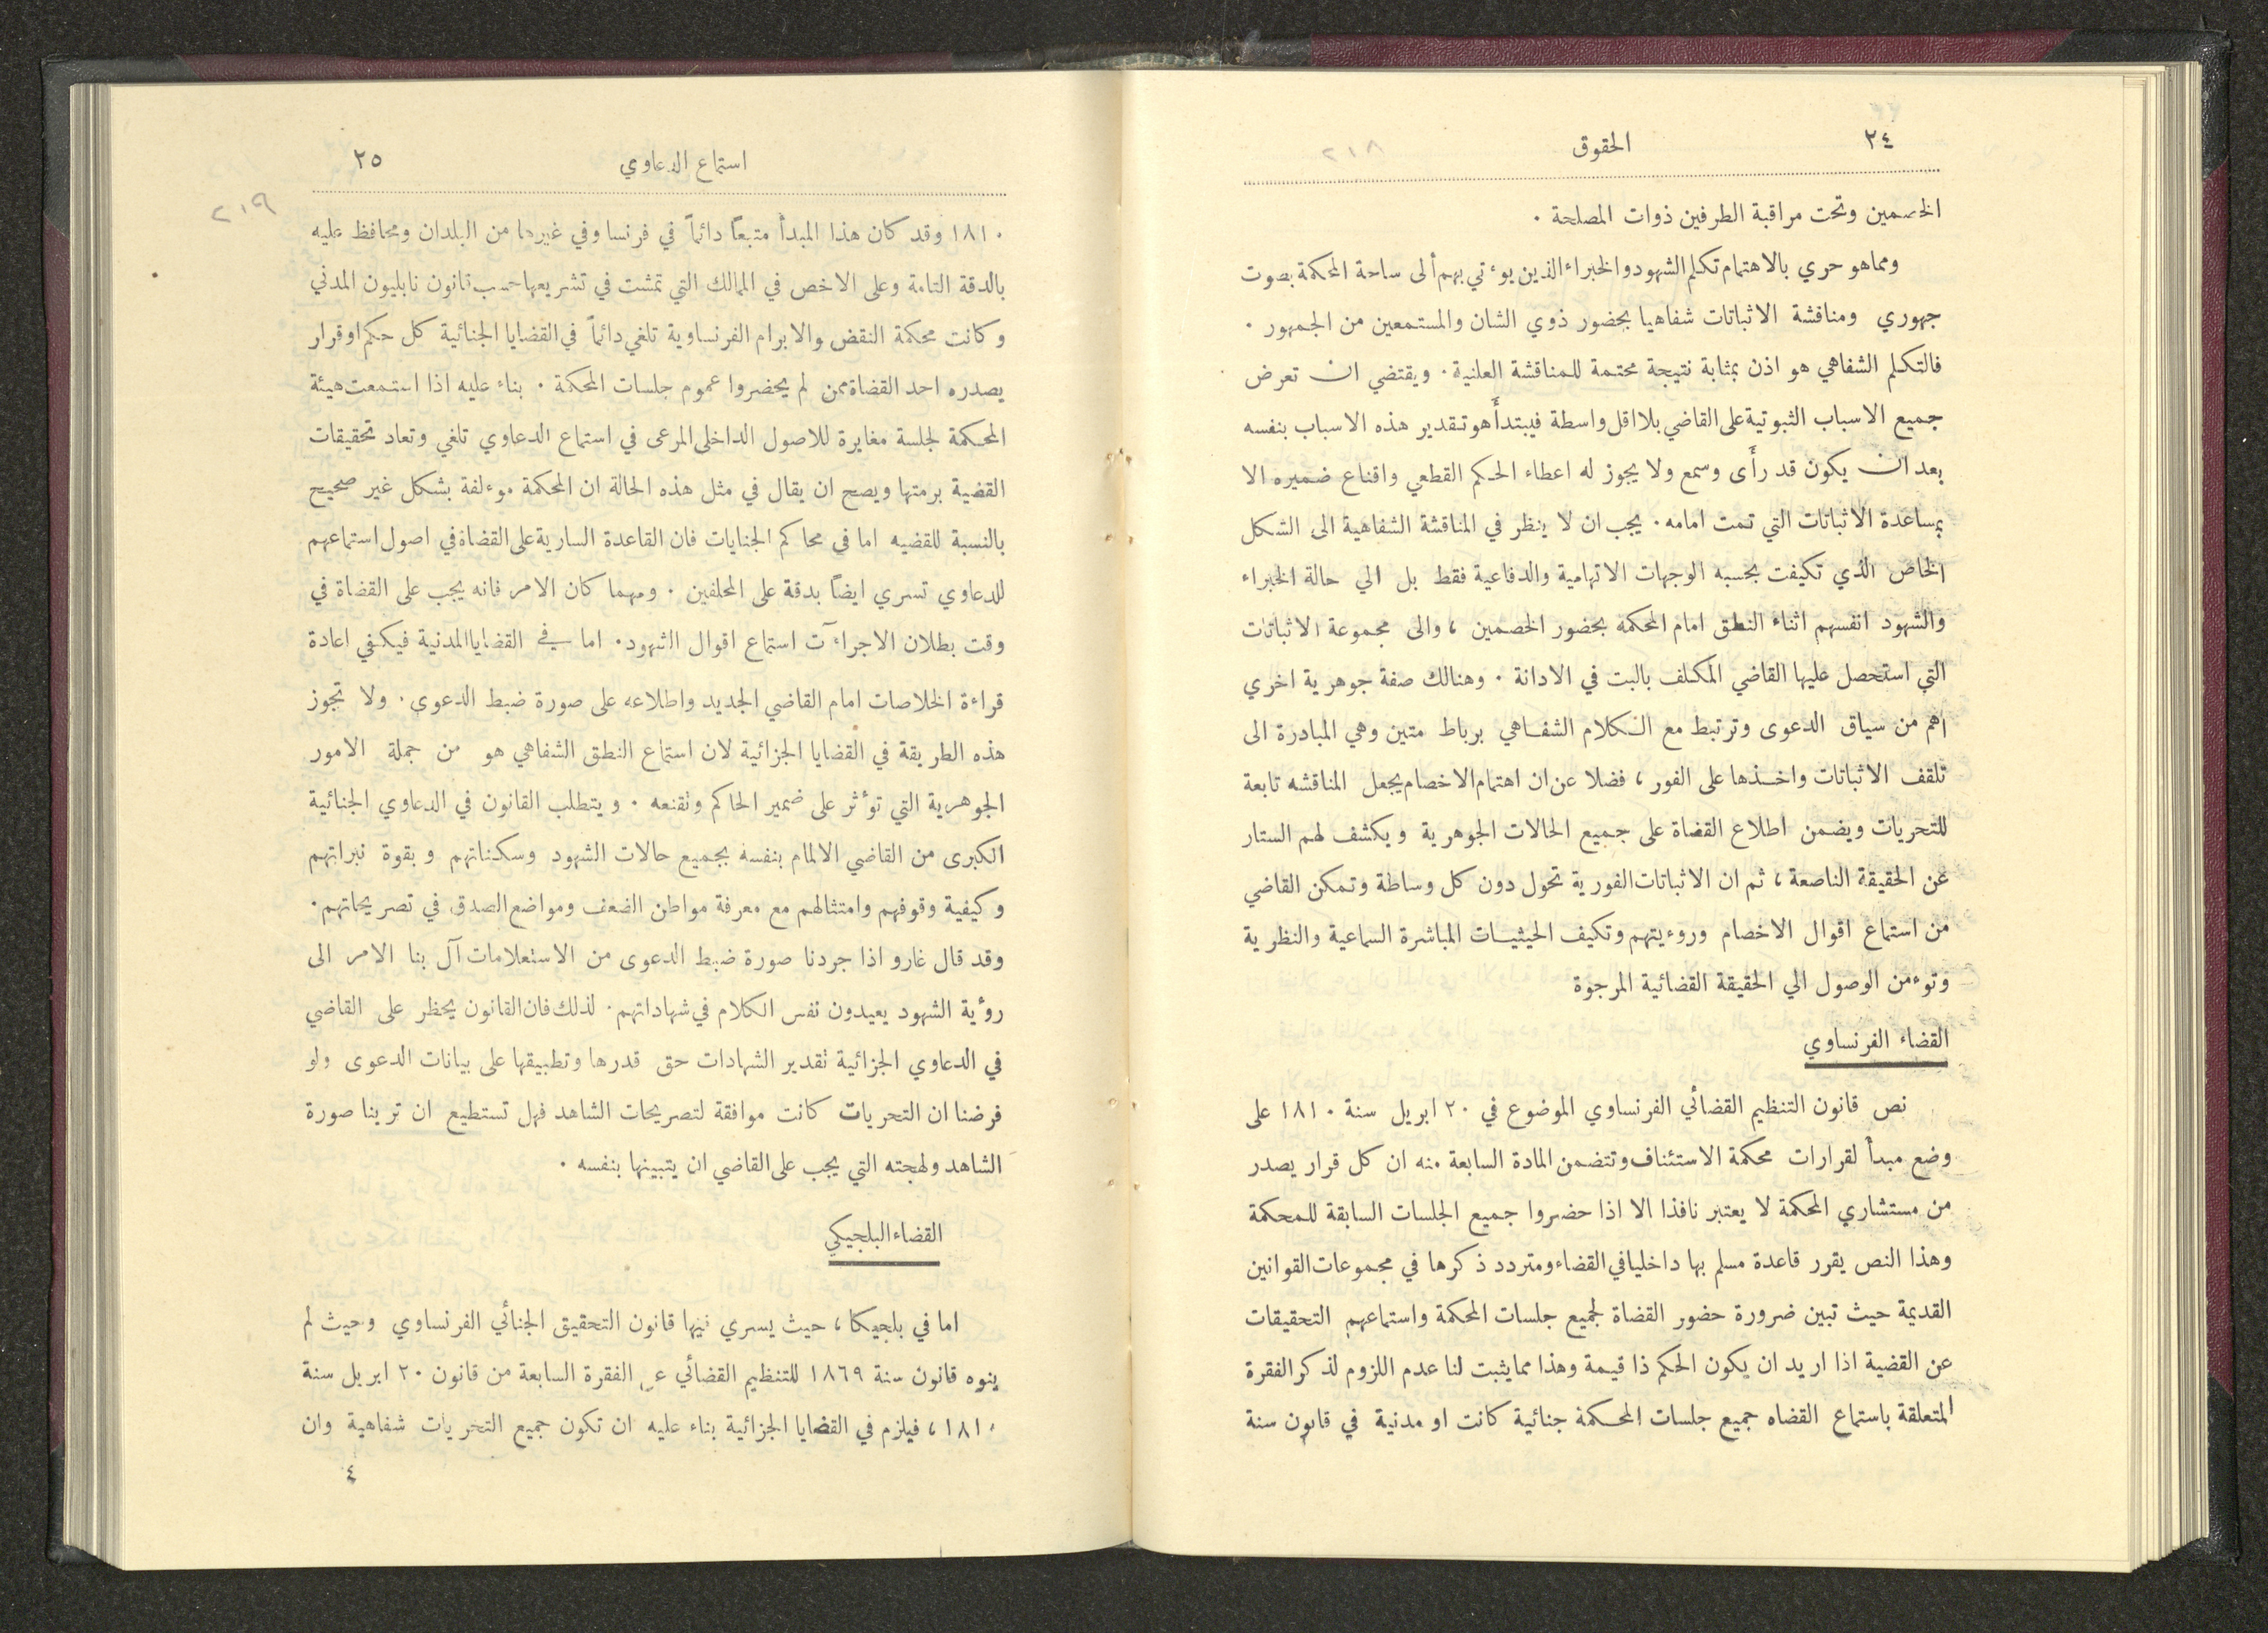 ٢٤ الحقوق ٢١٨
الخصمين وتحت مراقبة الطرفين ذوات المصلحة .
ومما هو حري بالاهتمام تكلم الشهود والخبراء الذين يوءتي بهم ألى ساحة المحكمة بصوت
جهوري ومناقشة الاثباتات شفاهيا بحضور ذوي الشان والمستمعين من الجمهور .
فالتكلم الشفاهي هو اذن بمثابة نتيجة محتمة للمناقشة العلنية . ويقتضي ان تعرض
جميع الاسباب الثبوتية على القاضي بلا اقل واسطة فيبتدأ هو تقدير هذه الاسباب بنفسه
بعد ان يكون قد رأى وسمع ولا يجوز له اعطاء الحكم القطعي واقناع ضميره الا
بمساعدة الاثباتات التي تمت امامه . يجب ان لا ينظر في المناقشة الشفاهية الى الشكل
الخاص الذي تكيفت بحسبه الوجهات الاتهامية والدفاعية فقط بل الي حالة الخبراء
والشهود انفسهم اثناء النطق امام المحكمة بحضور الخصمين ، والى مجموعة الاثباتات
التي استحصل عليها القاضي المكلف بالبت في الادانة . وهنالك صفة جوهرية اخري
اهم من سياق الدعوى وترتبط مع الكلام الشفاهي برباط متين وهي المبادرة الى
تلقف الاثباتات واخذها على الفور ، فضلا عن ان اهتمام الاخصام يجعل المناقشه تابعة
للتحريات ويضمن اطلاع القضاة على جميع الحالات الجوهرية ويكشف لهم الستار
عن الحقيقة الناصعة ، ثم ان الاثباتات الفورية تحول دون كل وساطة وتمكن القاضي
من استماع اقوال الاخصام وروءيتهم وتكيف الحيثيات المباشرة السماعية والنظرية
وتوءمن الوصول الي الحقيقة القضائية المرجوة
القضاء الفرنساوي
نص قانون التنظيم القضائي الفرنساوي الموضوع في ٢٠ ابريل سنة ١٨١٠ على
وضع مبدأ لقرارات محكمة الاستئناف وتتضمن المادة السابعة منه ان كل قرار يصدر
من مستشاري المحكمة لا يعتبر نافذا الا اذا حضروا جميع الجلسات السابقة للمحكمة
وهذا النص يقرر قاعدة مسلم بها داخليا في القضاء ومتردد ذكرها في مجموعات القوانين
القديمة حيث تبين ضرورة حضور القضاة لجميع جلسات المحكمة واستماعهم التحقيقات
عن القضية اذا اريد ان يكون الحكم ذا قيمة وهذا مما يثبت لنا عدم اللزوم لذكر الفقرة
المتعلقة باستماع القضاه جميع جلسات المحكمة جنائية كانت او مدنية في قانون سنة
استماع الدعاوي ٢٥
٢١٩
١٨١٠ وقد كان هذا المبدأ متبعاً دائماً في فرنسا وفي غيرها من البلدان ومحافظ عليه
بالدقة التامة وعلى الاخص في الممالك التي تمشت في تشريعها حسب قانون نابليون المدني
وكانت محكمة النقض والابرام الفرنساوية تلغي دائماً في القضايا الجنائية كل حكم او قرار
يصدره احد القضاة ممن لم يحضروا عموم جلسات المحكمة . بناء عليه اذا استمعت هيئة
المحكمة لجلسة مغايرة للاصول الداخلى المرعى في استماع الدعاوي تلغي وتعاد تحقيقات
القضية برمتها ويصح ان يقال في مثل هذه الحالة ان المحكمة موءلفة بشكل غير صحيح
بالنسبة للقضيه اما في محاكم الجنايات فان القاعدة السارية على القضاة في اصول استماعهم
للدعاوي تسري ايضاً بدقة على المحلفين . ومهما كان الامر فانه يجب على القضاة في
وقت بطلان الاجراآت استماع اقوال الشهود . اما في القضايا المدنية فيكفي اعادة
قراءة الخلاصات امام القاضي الجديد واطلاعه على صورة ضبط الدعوى . ولا تجوز
هذه الطريقة في القضايا الجزائية لان استماع النطق الشفاهي هو من جملة الامور
الجوهرية التي توءثر على ضمير الحاكم وتقنعه . ويتطلب القانون في الدعاوي الجنائية
الكبرى من القاضي الالمام بنفسه بجميع حالات الشهود وسكناتهم وبقوة نبراتهم
وكيفية وقوفهم وامتثالهم مع معرفة مواطن الضعف ومواضع الصدق في تصريحاتهم .
وقد قال غارو اذا جردنا صورة ضبط الدعوى من الاستعلامات آل بنا الامر الى
رؤية الشهود يعيدون نفس الكلام في شهاداتهم . لذلك فان القانون يحظر على القاضي
في الدعاوي الجزائية تقدير الشهادات حق قدرها وتطبيقها على بيانات الدعوى ولو
فرضنا ان التحريات كانت موافقة لتصريحات الشاهد فهل تستطيع ان ترينا صورة
الشاهد ولهجته التي يجب على القاضي ان يتبينها بنفسه .
القضاء البلجيكي
اما في بلجيكا ، حيث يسري فيها قانون التحقيق الجنائي الفرنساوي وحيث لم
ينوه قانون سنة ١٨٦٩ للتنظيم القضائي عن الفقرة السابعة من قانون ٢٠ ابريل سنة
١٨١٠ ، فيلزم في القضايا الجزائية بناء عليه ان تكون جميع التحريات شفاهية وان
٤